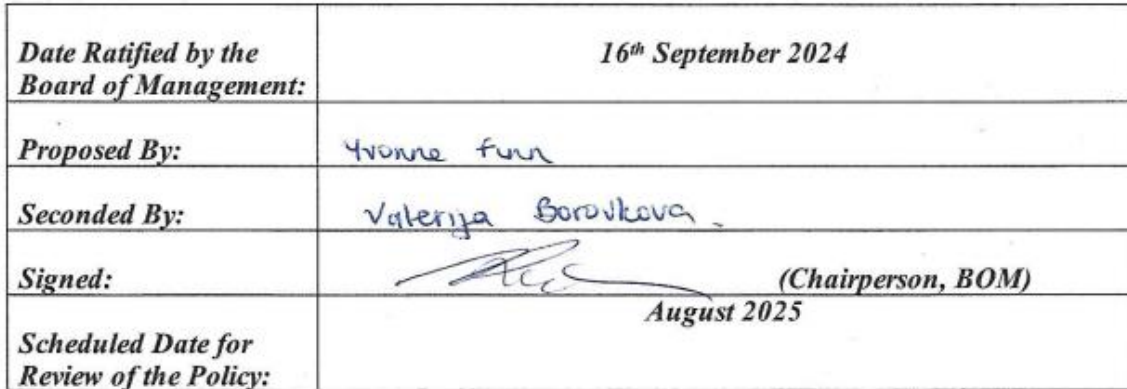 Date Ratified by the
Board of Management:
16th September 2024
Proposed By:
Yvonne Funn
Seconded By:
Valerija Borovkova.
Signed:
(Chairperson, BOM)
August 2025
Scheduled Date for
Review of the Policy: